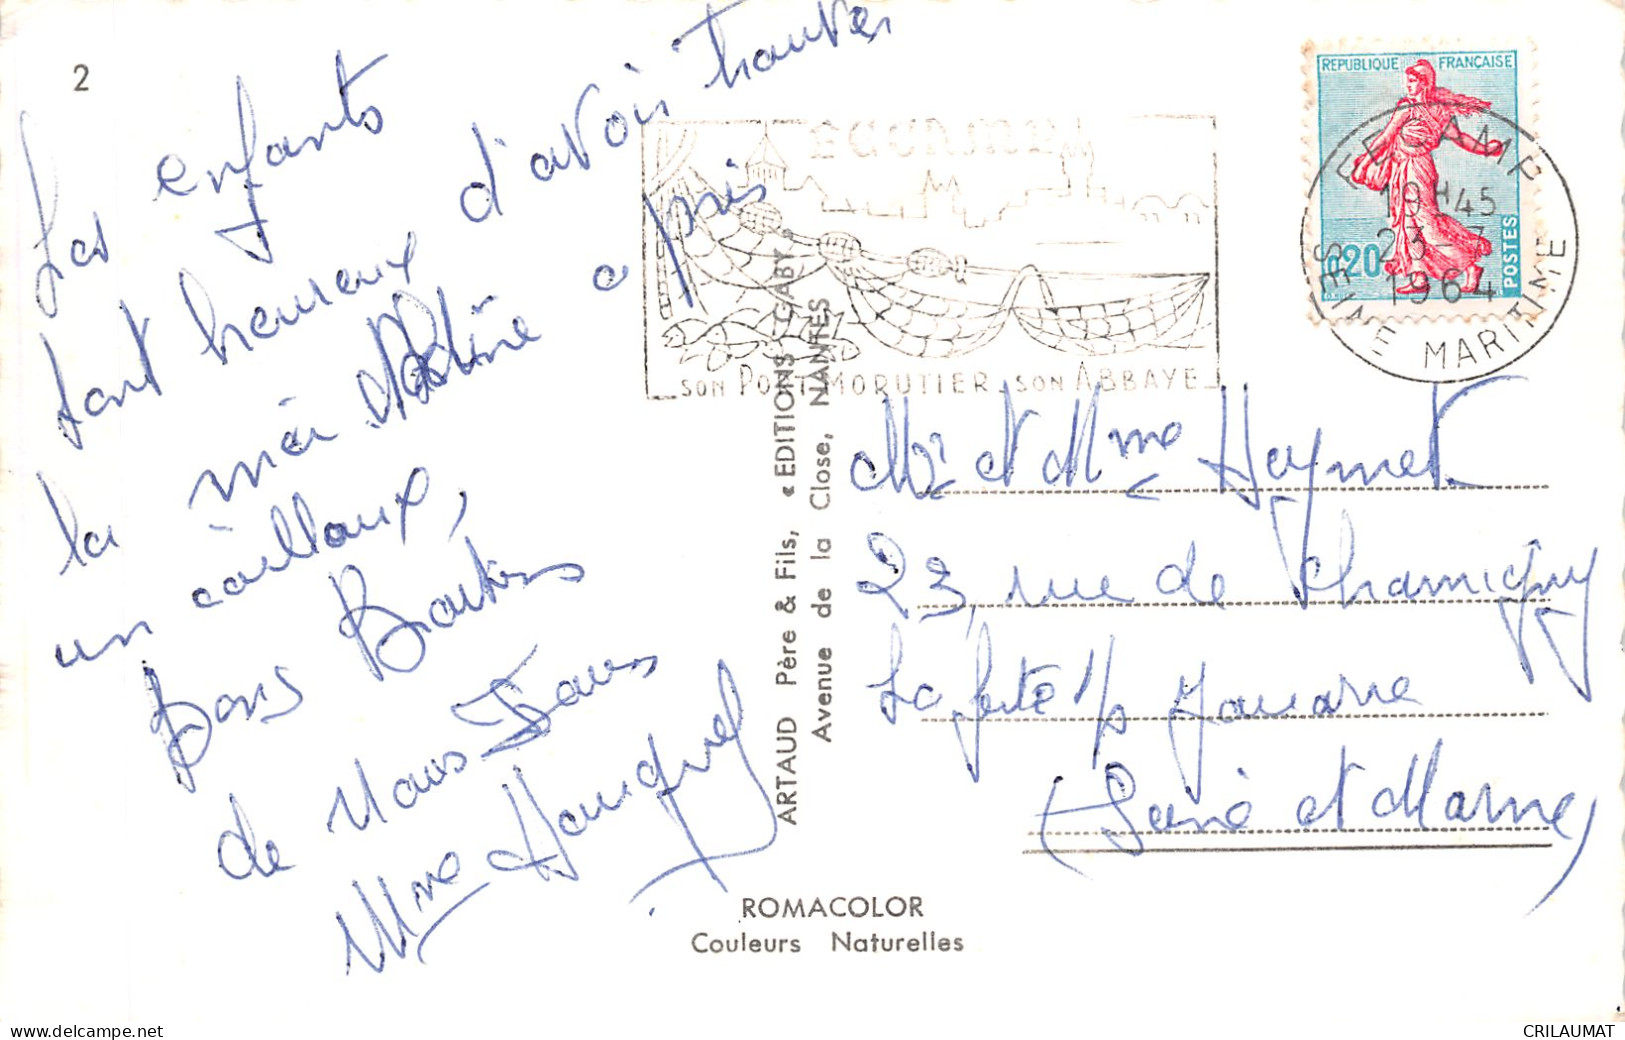 2
Les enfants
sont heureux d'avoir trouver
la mer Martine a pris
un caillaux,
Bons Baisers
de Nous Tous
Mme Hauquel
ARTAUD Père & Fils, « EDITIONS GABY »
Avenue de la Close, NANTES
FECAMP
SON PORT MORUTIER SON ABBAYE
REPUBLIQUE FRANÇAISE
0,20
POSTES
FECAMP
19H45
23-7
1964
SEINE MARITIME
Mr et Mme Haymet
23, rue de Chamigny
La ferté s/s Jouarre
(Seine et Marne)
ROMACOLOR
Couleurs Naturelles
www.delcampe.net
CRILAUMAT